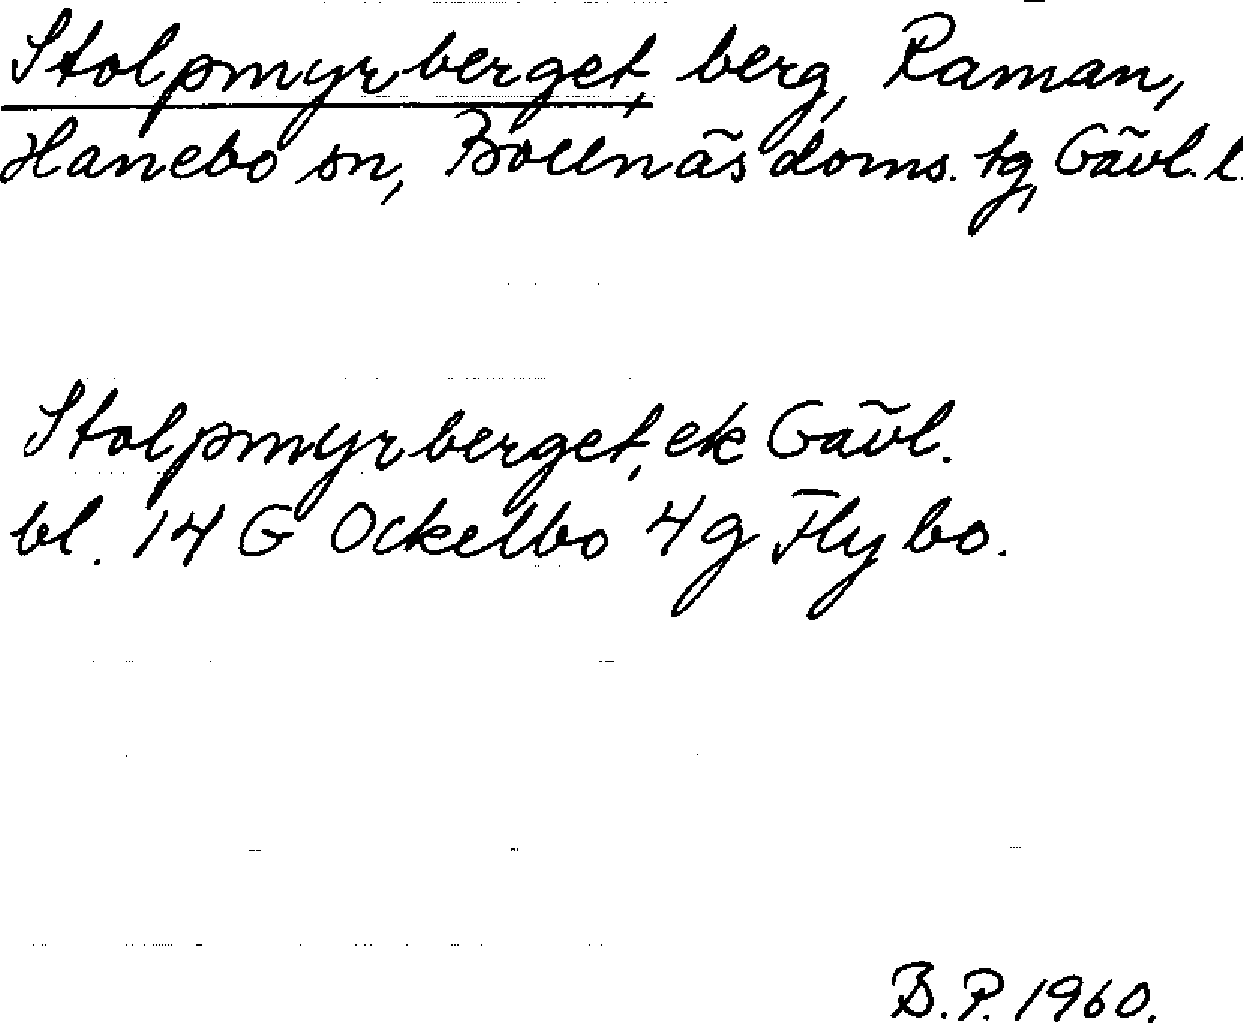 Stolpmyrberget, berg, Raman,
Hanebo sn, Bollnäs doms. tg, Gävl. l.
Stolpmyrberget, ek Gävl.
bl. 14 G Ockelbo 4 g Flybo.
B.P. 1960.